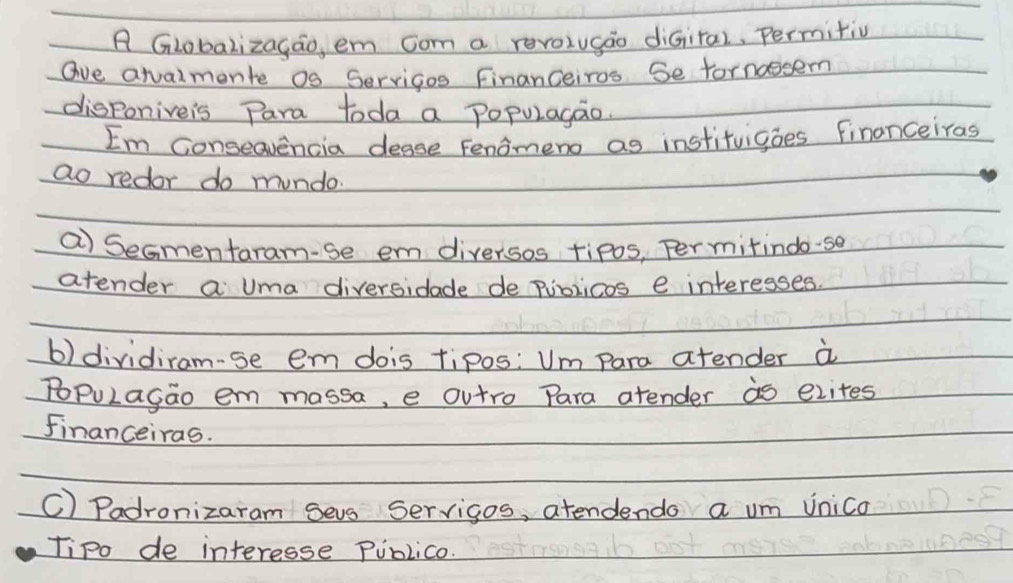 A Globalização, em com a revolução digital, permitiu
que atualmente os serviços financeiros se tornassem
disponíveis para toda a população.
Em consequência desse fenômeno as instituições financeiras
ao redor do mundo.
a) Segmentaram-se em diversos tipos, permitindo-se
atender a uma diversidade de públicos e interesses.
b) dividiram-se em dois tipos: um para atender à
população em massa, e outro para atender às elites
financeiras.
c) Padronizaram seus serviços, atendendo a um único
tipo de interesse público.